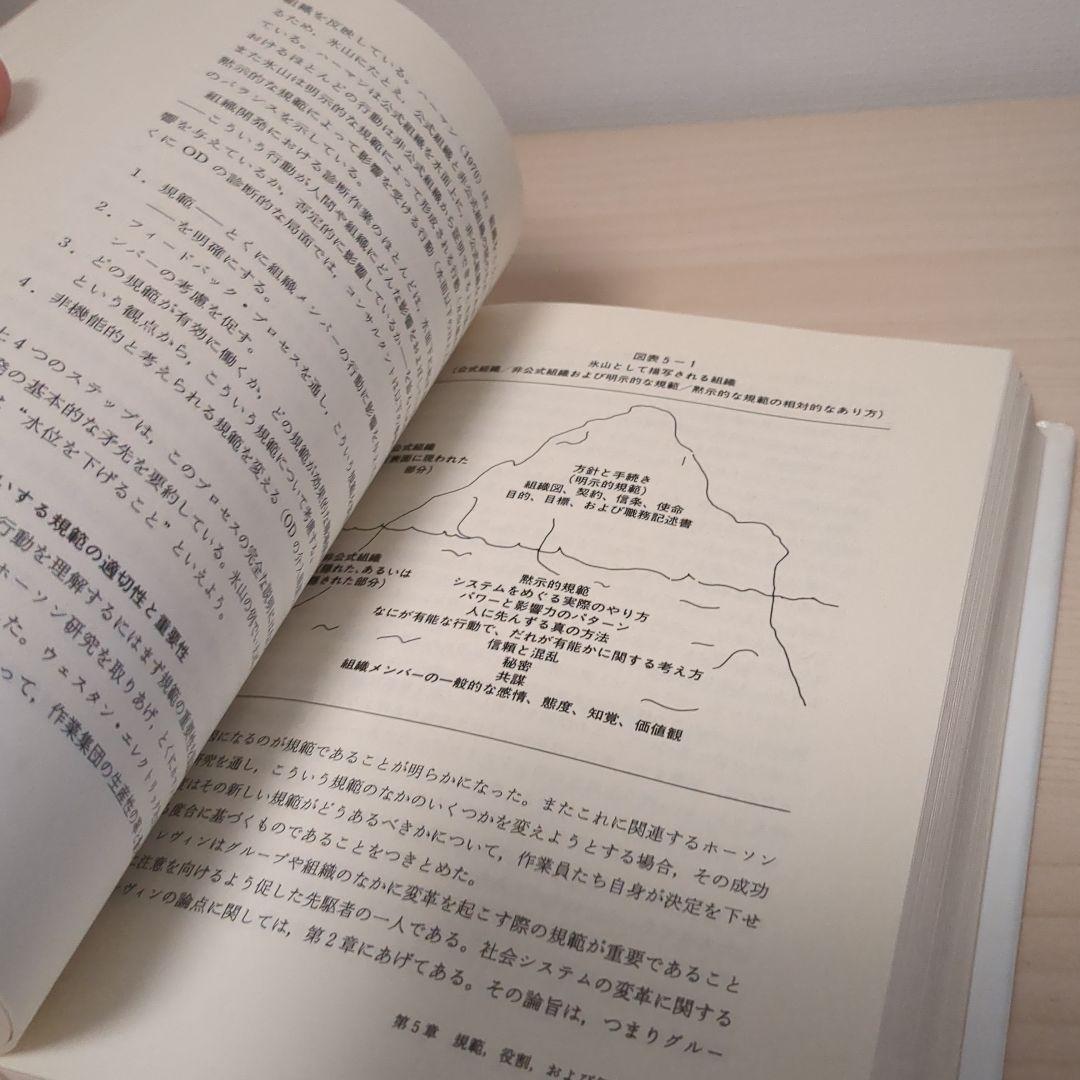 組織を反映している。ハーマン (1970) は、
るため、氷山にたとえ、公式組織を水面上に、非公式組織
ている。ハーマンは公式組織と非公式組織の
おけるほとんどの行動は非公式組織から
また氷山は明示的な規範によって形成される行動
黙示的な規範によって影響を受ける行動
のバランスを示している。
組織開発における診断作業のほとんどは、水面下
――こういう行動が人間や組織にどんな影響を
響を与えているか、否定的に影響しているか――
くに OD の診断的な局面では、コンサルタントは
1. 規範――とくに組織メンバーの行動に影響を
――を明確にする。
2. フィードバック・プロセスを通し、こういう規範
ンバーの考慮を促す。
3. どの規範が有効に働くか、どの規範が効果的
という観点から、こういう規範について考慮する
4. 非機能的と考えられる規範を変える (OD の
上4つのステップは、このプロセスの完全な説明
発の基本的な矛先を要約している。氷山の
“水位を下げること”といえよう。
する規範の適切性と重要性
行動を理解するにはまず規範の重要性
ホーソン研究を取りあげ、とくに
た。ウェスタン・エレクトリック
って、作業集団の生産性の
図表5－1
氷山として描写される組織
(公式組織／非公式組織および明示的な規範／黙示的な規範の相対的なあり方)
公式組織
(表面に現われた
部分)
方針と手続き
(明示的規範)
組織図、契約、信条、使命
目的、目標、および職務記述書
非公式組織
(隠れた、あるいは
隠された部分)
黙示的規範
システムをめぐる実際のやり方
パワーと影響力のパターン
人に先んずる真の方法
なにが有能な行動で、だれが有能かに関する考え方
信頼と混乱
秘密
共謀
組織メンバーの一般的な感情、態度、知覚、価値観
になるのが規範であることが明らかになった。またこれに関連するホーソン
研究を通し、こういう規範のなかのいくつかを変えようとする場合、その成功
はその新しい規範がどうあるべきかについて、作業員たち自身が決定を下せ
度合に基づくものであることをつきとめた。
レヴィンはグループや組織のなかに変革を起こす際の規範が重要であること
注意を向けるよう促した先駆者の一人である。社会システムの変革に関する
ヴィンの論点に関しては、第2章にあげてある。その論旨は、つまりグルー
第5章 規範，役割，および